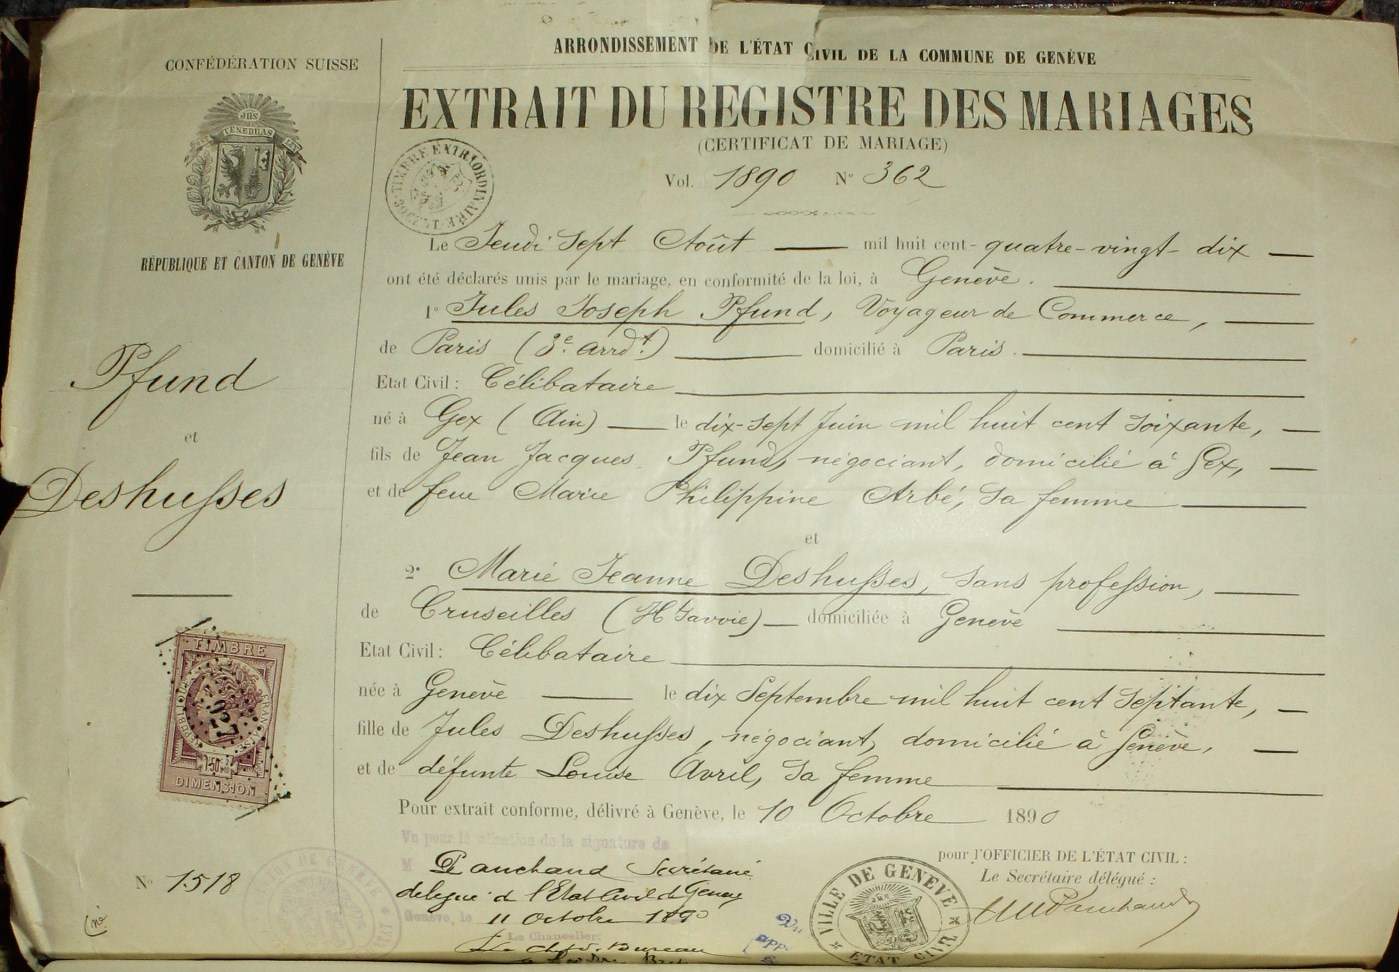 CONFÉDÉRATION SUISSE
POST TENEBRAS LUX
RÉPUBLIQUE ET CANTON DE GENÈVE
Pfund
et
Deshusses
TIMBRE
DIMENSION
N° 1518
ARRONDISSEMENT DE L'ÉTAT CIVIL DE LA COMMUNE DE GENÈVE
EXTRAIT DU REGISTRE DES MARIAGES
(CERTIFICAT DE MARIAGE)
TIMBRE EXTRAORDINAIRE
Vol. 1890 N° 362
Le Jeudi Sept Août mil huit cent quatre-vingt-dix
ont été déclarés unis par le mariage, en conformité de la loi, à Genève.
1° Jules Joseph Pfund, Voyageur de Commerce,
de Paris (3e. arrdt.) domicilié à Paris.
Etat Civil : Célibataire
né à Gex (Ain) le dix-sept Juin mil huit cent soixante,
fils de Jean Jacques Pfund, négociant, domicilié à Gex,
et de feue Marie Philippine Arbé, sa femme
et
2° Marie Jeanne Deshusses, sans profession,
de Cruseilles (Hte Savoie) domiciliée à Genève
Etat Civil : Célibataire
née à Genève le dix Septembre mil huit cent septante,
fille de Jules Deshusses, négociant, domicilié à Genève,
et de défunte Louise Avril, sa femme
Pour extrait conforme, délivré à Genève, le 10 Octobre 1890
Vu pour légalisation de la signature de
M Panchaud Secrétaire
délégué à l'Etat Civil de Genève
Genève, le 11 Octobre 1890
Le Chancelier:
pour l'OFFICIER DE L'ÉTAT CIVIL :
Le Secrétaire délégué :
Panchaud
VILLE DE GENÈVE
ETAT CIVIL